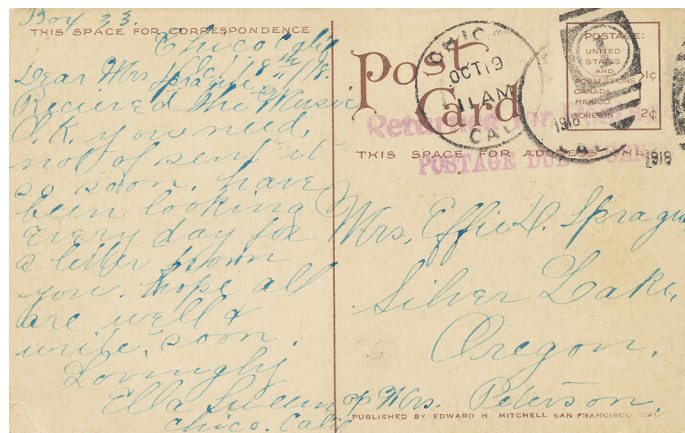 Box 33.
THIS SPACE FOR CORRESPONDENCE
Chico, Calif
Oct 18th/18.
Dear Mrs Sprague -
Recieved the Music
O.K. you need
not of sent it
so soon. have
been looking
every day for
a letter from
you. hope all
are well &
write. soon.
Lovingly
Ella
Chico. Calif
Post Card
CHICO
OCT 19
11 AM
CAL
1918
1918
POSTAGE:
UNITED
STATES
AND
POSSESSIONS
CANADA
MEXICO
1¢
FOREIGN 2¢
Returned for
POSTAGE DUE
THIS SPACE FOR ADDRESS ONLY
Mrs. Effie D. Sprague
Silver Lake,
Oregon.
Mrs. Peterson,
PUBLISHED BY EDWARD H. MITCHELL SAN FRANCISCO CAL